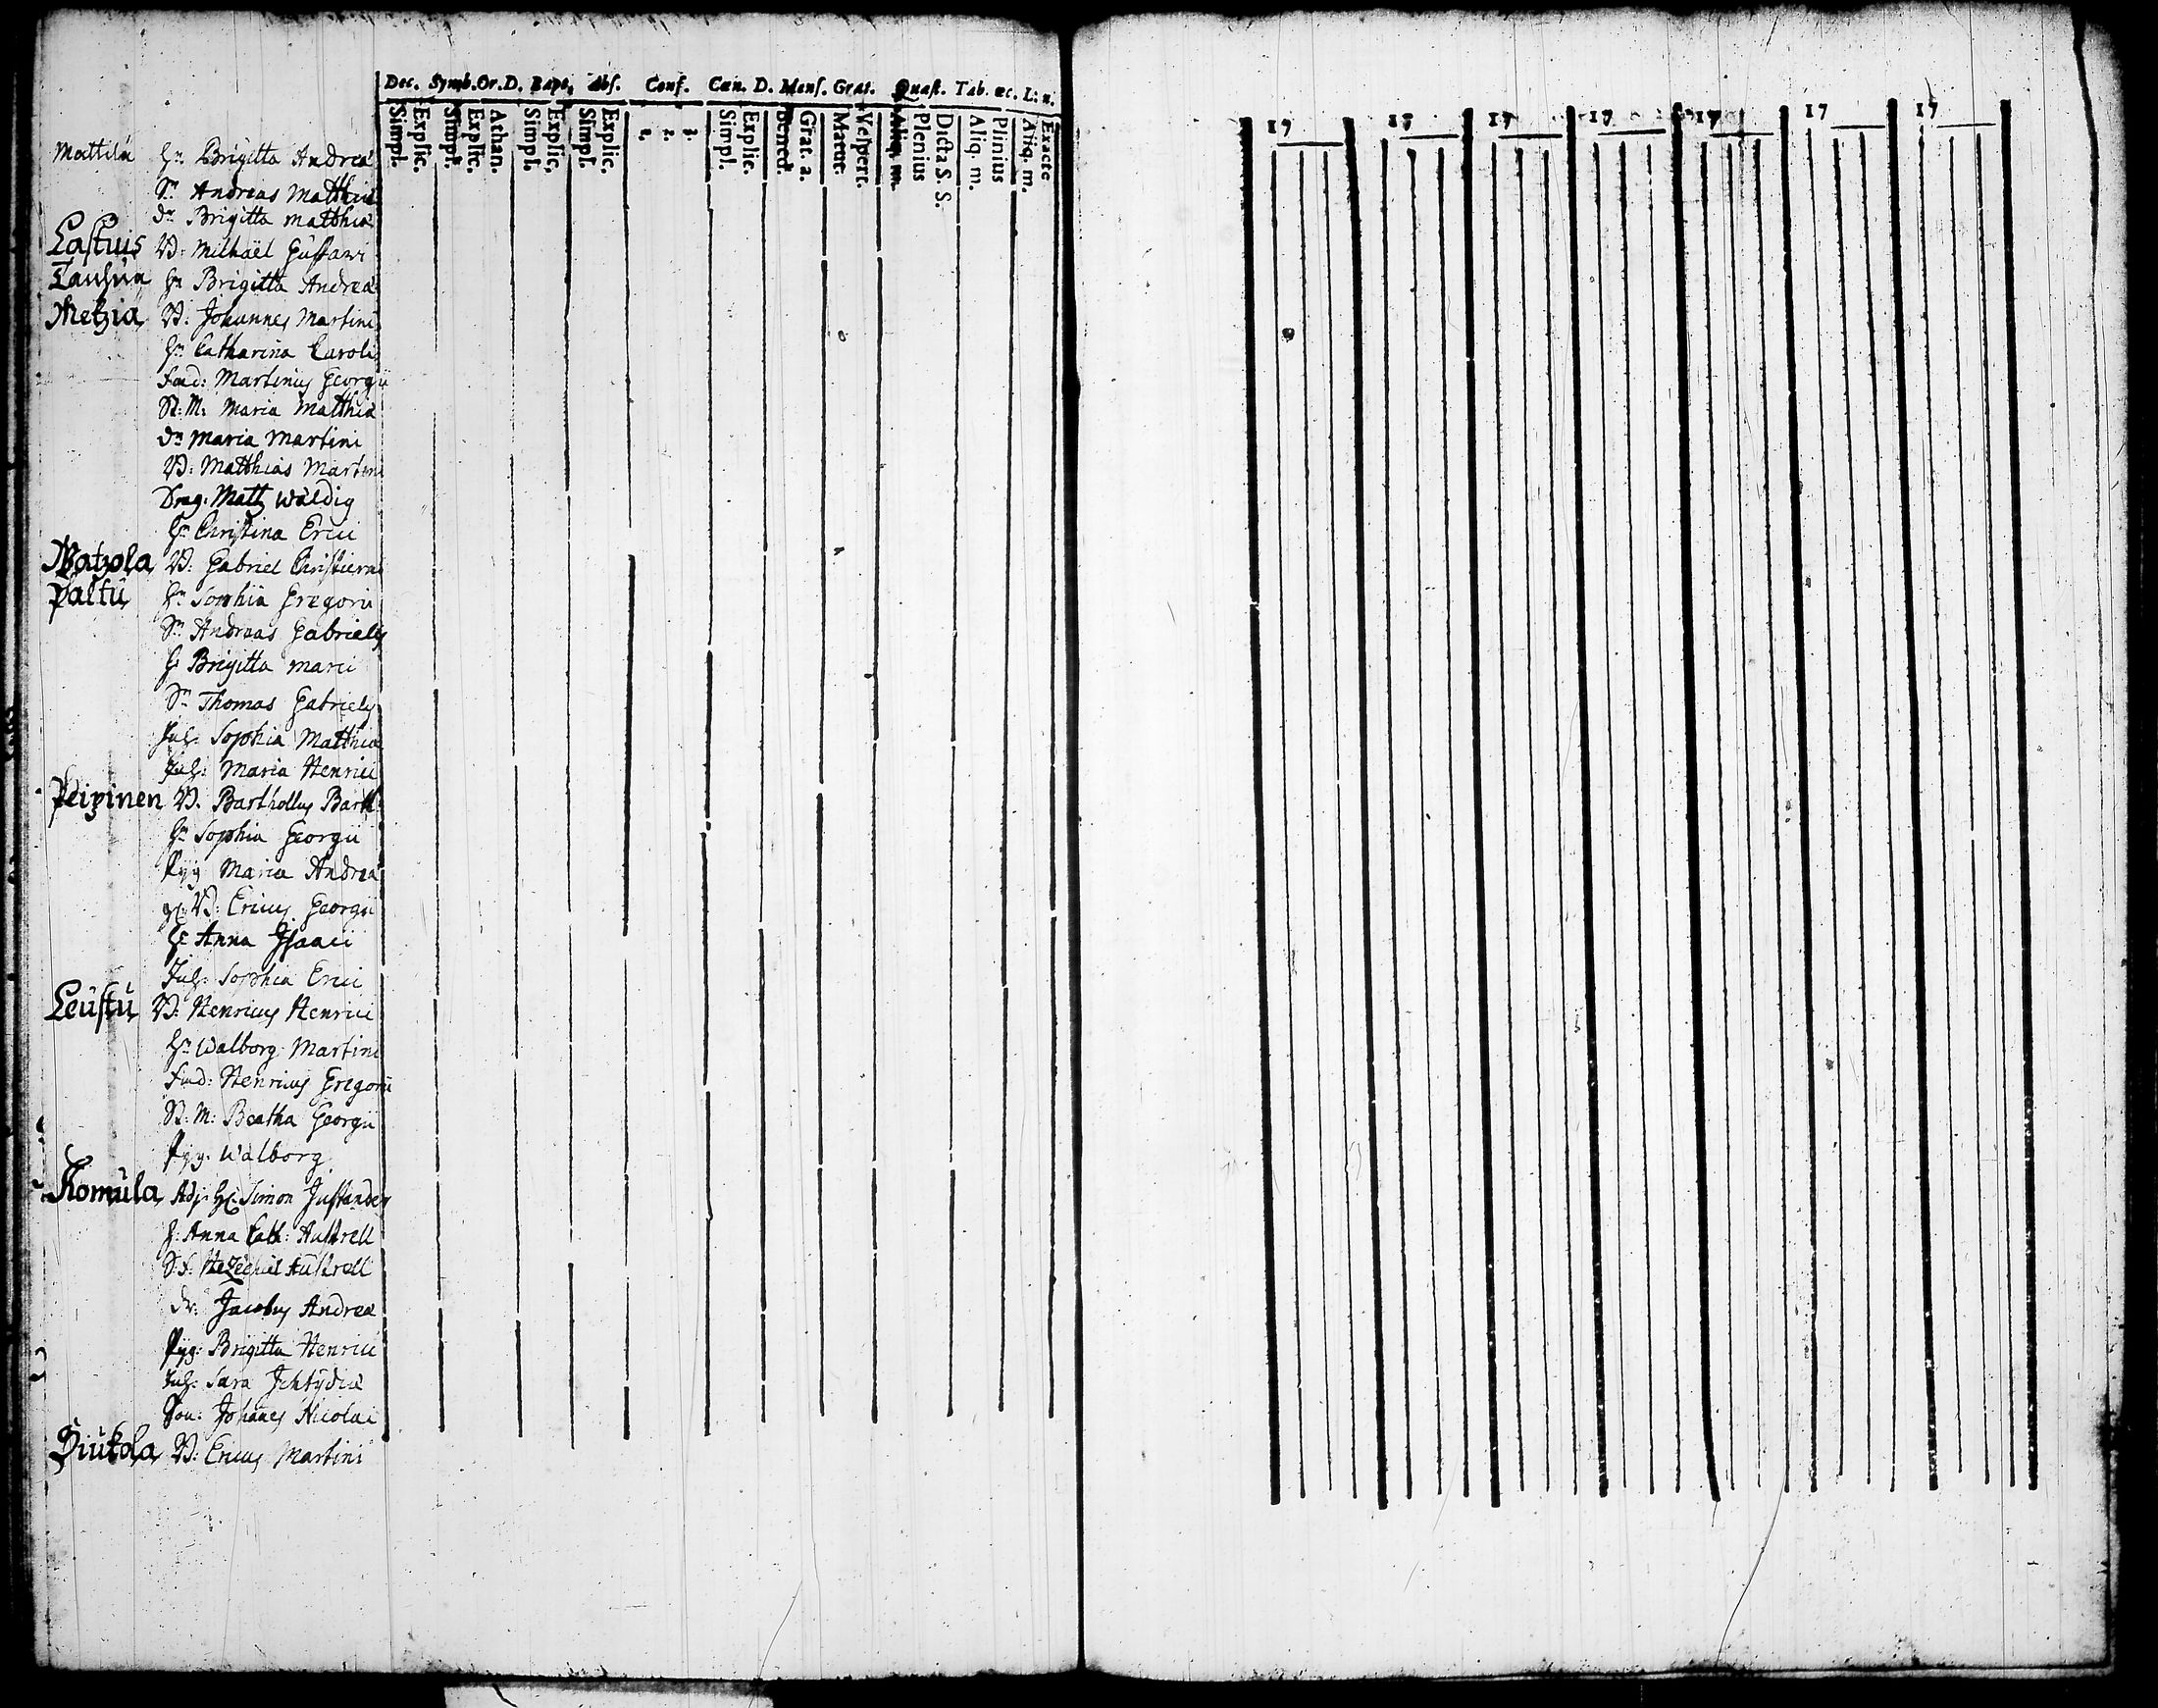 Dec. Symb. Or. D. Bapt. Abs. Conf. Cœn. D. Mens. Grat. Quæst. Tab. œc. L: n.
Simpl. Explic. Simpl. Explic. Athan. Simpl. Explic. Simpl. Explic. 1. 2. 3. Simpl. Explic. Bened. Grat. a. Matut. Vespert. Aliq. m. Plenius Dicta S. S. Aliq. m. Plinius Aliq. m. Exacte
17 17 17 17 17 17 17
Mattila Hu Brigitta Andreæ
Sn Andreas Matthiæ
dr Brigitta Matthiæ
Lastuis V: Milhaël Gustavi
Hu Brigitta Andreæ
Metziä V: Johannes Martini
Hu Catharina Caroli
Martinus Georgii
St: M: Maria Matthiæ
dr Maria Martini
V: Matthias Martini
Drag: Matts Wäldig
Hu Christina Erici
Watzola V: Gabriel Christierni
Paltu Hu Sophia Gregorii
Sn Andreas Gabrielis
H: Brigitta Marci
Sn Thomas Gabrielis
Inh: Sophia Matthiæ
Inh: Maria Henrici
Peipinen V: Barthollus Barth
Hu Sophia Georgii
Pyg Maria Andreæ
V: Ericus Georgii
Hu Anna Isaaci
Inh: Sophia Erici
Leüstü V: Henricus Henrici
Hu Walborg Martini
Henricus Gregorii
St: M: Beatha Georgii
Pyg: Walborg
Komula Adj: Simon Justander
H: Anna Cath: Austrell
S:f: Hezechiel Austrell
dr: Jacobus Andreæ
Pyg: Brigitta Henrici
Inh: Sara
Johanes Nicolai
V: Ericus Martini